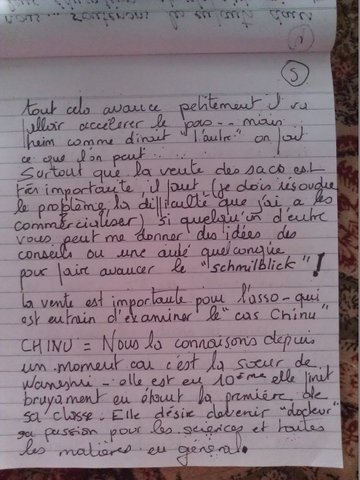 nous... soutenons les enfants dans
5
tout cela avance petitement il va
falloir accélérer le pas... mais
heim comme dirait "l'autre" on fait
ce que l'on peut.
Surtout que la vente des sacs est
très importante, il faut, (je dois résoudre
le problème, la difficulté que j'ai a les
commercialiser) si quelqu'un d'entre
vous, peut me donner des idées des
conseils ou une aide quelconque
pour faire avancer le "schmilblick" !
la vente est importante pour l'asso - qui
est entrain d'examiner le "cas Chinu"
CHINU = Nous la connaisons depuis
un moment car c'est la sœur de
Waneshri - elle est en 10ème elle finit
bruyament en étant la première de
sa classe. Elle désire devenir "docteur"
sa passion pour les sciences et toutes
les matières en général.